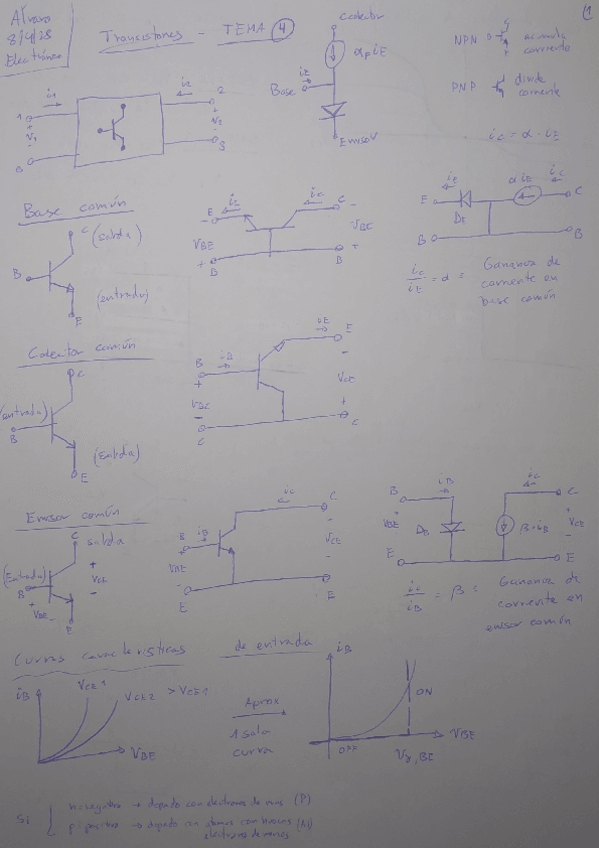 Alvaro
8/4/28
Electrónica
Transistores - TEMA 4
1
Colector
αF iE
iE
Base
Emisor
NPN
acumula
corriente
PNP
divide
corriente
iC = α · iE
i1
i2
1
2
+
V1
-
+
V2
-
0
3
Base común
C (salida)
B
(entrada)
E
iE
iC
E
C
-
-
VBE
VBE
+
+
B
B
iE
α iE
iC
E
C
DE
B
B
iC / iE = α = Ganancia de
corriente en
base común
Colector común
C
(entrada)
B
(Salida)
E
iB
iE
B
E
+
-
VBC
VCE
-
+
C
C
Emisor común
C salida
(Entrada)
B
+
VCE
-
+ VBE -
E
iB
iC
B
C
+
VBE
VCE
-
E
E
iB
iC
B
C
+
+
VBE
DB
β · iB
VCE
-
-
E
E
iC / iB = β = Ganancia de
corriente en
emisor común
Curvas características de entrada
iB
VCE1
VCE2 > VCE1
VBE
Aprox
1 sola
curva
iB
ON
OFF
VBE
Vγ, BE
Si
n: negativo → dopado con electrones de mas (P)
p: positivo → dopado con atomos con huecos (Al)
electrones de menos